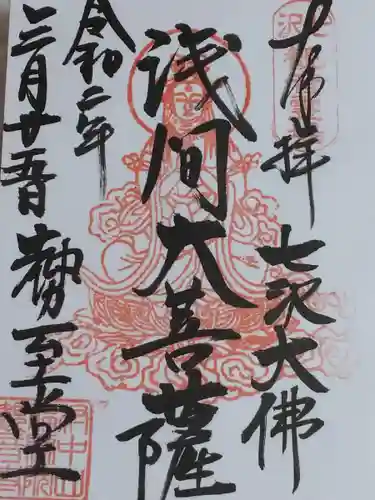 奉拝
七沢大佛
浅間大菩薩
令和二年
十二月廿五日
勢至堂